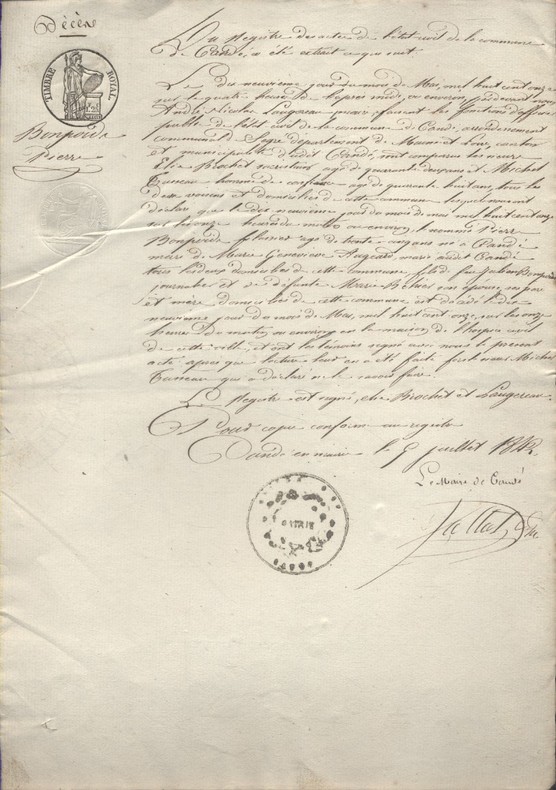 Décès
TIMBRE ROYAL
Bonpoide
Pierre
Du Registre des actes de l'état civil de la commune
de Candé, a été extrait ce qui suit.
Le dix neuvieme jour du mois de Mai, mil huit cent onze
sur les quatre heures de l'apres midi, ou environ, pardevant nous
André Nicolas Laugereau faisant les fonctions d'officier
public de l'état civil de la commune de Candé, arrondissement
communal de Segré departement de Maine et Loire, canton
et municipalité dudit Candé, ont comparus les sieurs
Elie Brochet agé de quarante deux ans et Michel
homme de confiance agé de quarante huit ans, tous les
deux voisins et domiciliés de cette commune lesquels m'ont
déclaré que le dix neuvieme jour du mois de mai mil huit cent onze
sur les onze heures du matin ou environ, le nommé Pierre
Bonpoide agé de trente ans né à Candé
mari de Marie Genevieve audit Candé
tous les deux domiciliés de cette commune, fils de Julien
journalier et de défunte Marie son épouse, ses pere
et mere, domiciliés de cette commune est décédé le dix
neuvieme jour du mois de Mai, mil huit cent onze, sur les onze
heures du matin, ou environ en la maison de l'hospice civil
de cette ville, et ont les temoins signé avec nous le present
acte, apres que lecture leur en a été faite, fors le nommé Michel
qui a déclaré ne le savoir faire.
Le Registre est signé, elie Brochet et Laugereau.
Pour copie conforme au registre
Candé en mairie le 9 juillet 1818.
Le Maire de Candé